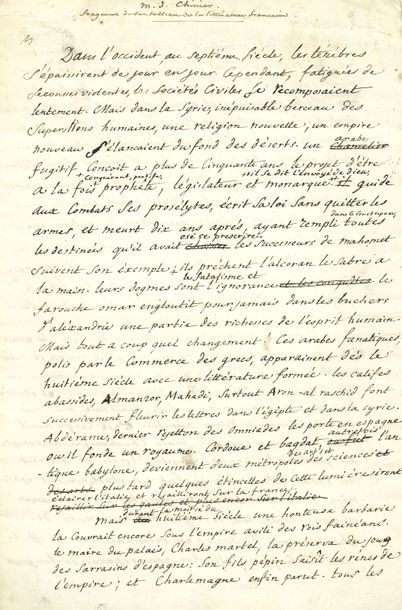 M. J. Chénier
fragment du tableau de la littérature française
Dans l'occident au septième siècle, les ténèbres
s'épaisirent de jour en jour cependant, fatiguées de
secousses violentes, les sociétés civiles se recomposaient
lentement. Mais dans la Syrie, inépuisable berceau des
superstitions humaines, une religion nouvelle, un empire
nouveau s'élancaient du fond des déserts. un
arabe
chamelier
fugitif conçoit a plus de cinquante ans le projet d'être
conquérant, pontife, il se dit l'envoyé de dieu,
a la fois prophète, législateur et monarque. Il guide
aux combats ses prosélytes, écrit sa loi sans quitter les
armes, et meurt dix ans après, ayant rempli toutes
osé se prescrire. dans le
les destinées qu'il avait les successeurs de mahomet
suivent son exemple, ils prêchent l'alcoran le sabre a
le fatalisme et
la main. leurs dogmes sont l'ignorance et les conquêtes. le
farouche omar engloutit pour jamais dans les buchers
d'alexandrie une partie des richesses de l'esprit humain.
Mais tout a coup quel changement! Ces arabes fanatiques,
polis par le commerce des grecs, apparaissent dès le
huitième siècle avec une littérature formée. les califes
abassides, Almanzor, Mahadi, surtout Aron-al raschid font
successivement fleurir les lettres dans l'égipte et dans la syrie.
Abdérame, dernier rejetton des omniades les porte en espagne
ou il fonde un royaume. Cordoue et bagdat
autrefois
ou fut l'an
des arts et
-tique babylone, deviennent deux métropoles des sciences et
des arts plus tard quelques étincelles de cette lumière iront
éclairer l'italie, et rejailliront sur la france.
rejaillir sur les gaules et plus encor sur l'italie
durant la moitié du
Mais huitième siècle une honteuse barbarie
la couvrait encore sous l'empire avili des rois fainéans.
te maire du palais, Charles martel, la préserva du joug
des sarrasins d'espagne: son fils pépin saisit les rênes de
l'empire; et Charlemagne enfin parut. tous les